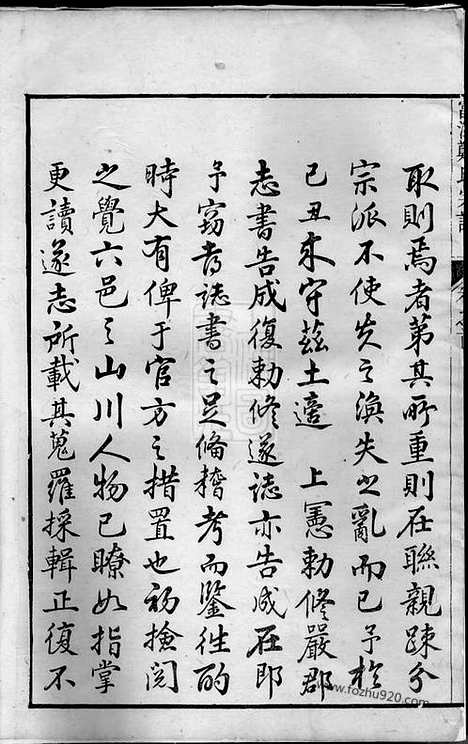 取則焉者第其所重則在聯親疎分
宗派不使失之渙失之亂而已予於
己丑來守茲土適 上憲勅修嚴郡
志書告成復勅修遂誌亦告成在郎
予竊喜誌書之足備稽考而鑒往酌
時大有俾于官方之措置也初撿閱
之覺六邑之山川人物已瞭如指掌
更讀遂志所載其蒐羅採輯正復不
www.fozhu920.com